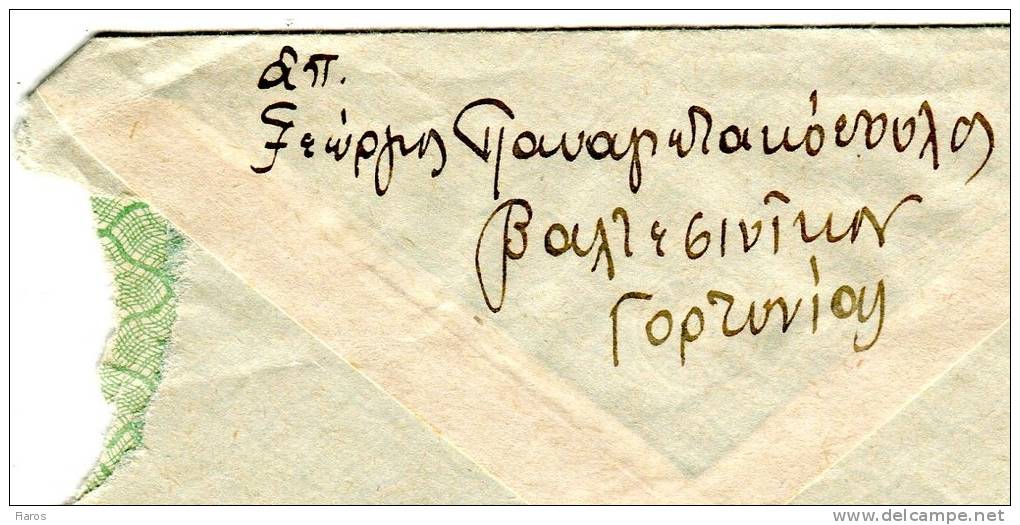 ἀπ.
Γεώργιος Παναγιωτακόπουλος
Βαλτεσινῖκον
Γορτυνίας
Raros
delcampe.net